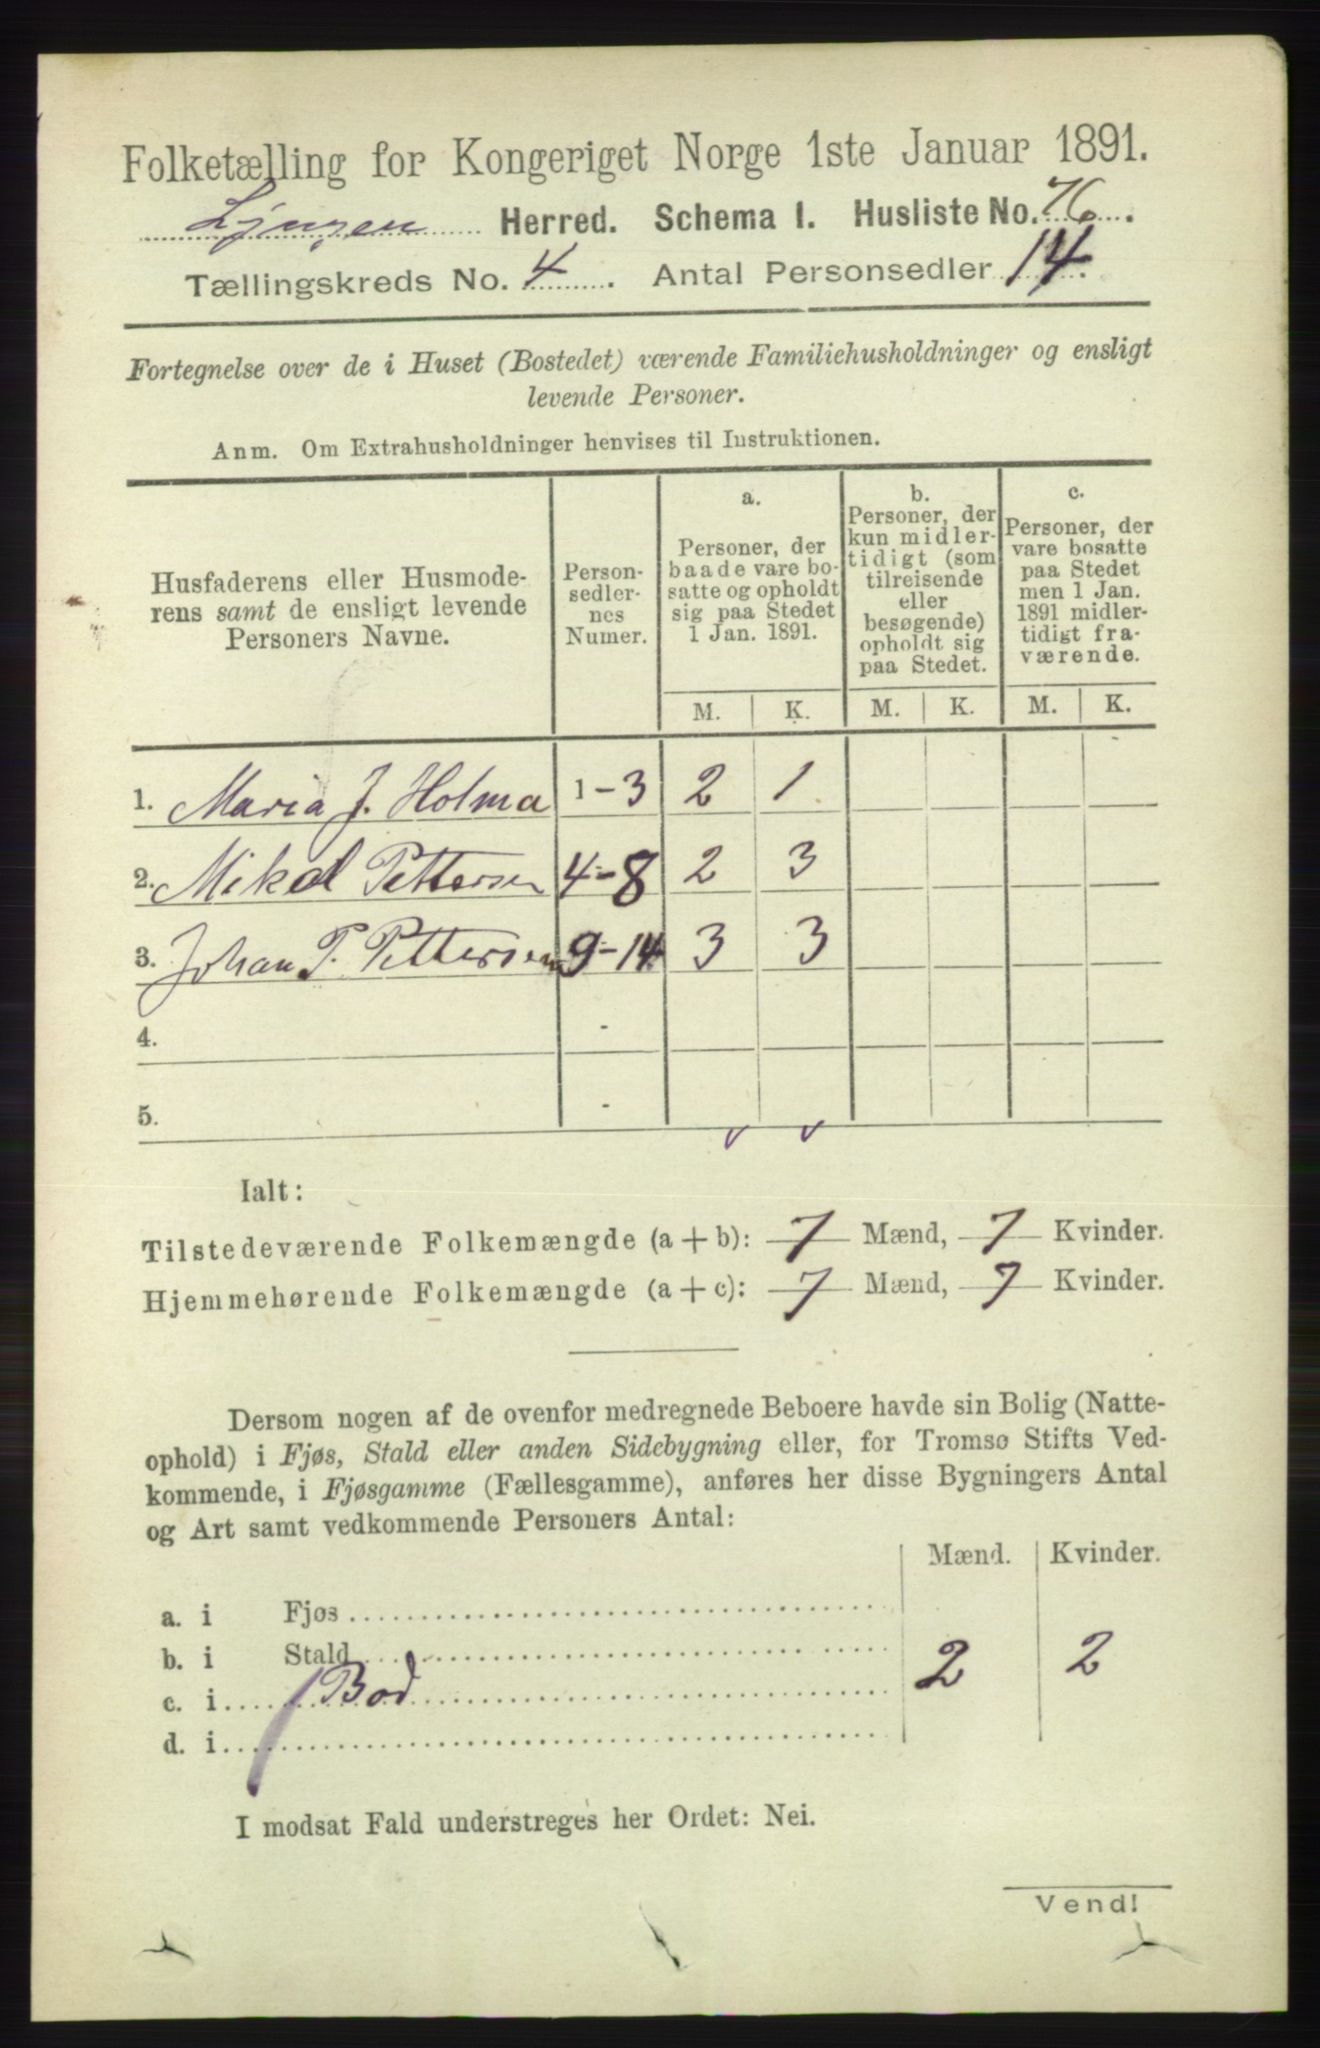 Folketælling for Kongeriget Norge 1ste Januar 1891.
Lyngen Herred. Schema I. Husliste No. 76.
Tællingskreds No. 4. Antal Personsedler 14.
Fortegnelse over de i Huset (Bostedet) værende Familiehusholdninger og ensligt
levende Personer.
Anm. Om Extrahusholdninger henvises til Instruktionen.
Husfaderens eller Husmode-
rens samt de ensligt levende
Personers Navne.
Person-
sedler-
nes
Numer.
a.
Personer, der
baade vare bo-
satte og opholdt
sig paa Stedet
1 Jan. 1891.
b.
Personer, der
kun midler-
tidigt (som
tilreisende
eller
besøgende)
opholdt sig
paa Stedet.
c.
Personer, der
vare bosatte
paa Stedet
men 1 Jan.
1891 midler-
tidigt fra-
værende.
M. K. M. K. M. K.
1. Maria J. Holma 1-3 2 1
2. Mikal Pettersen 4-8 2 3
3. Johan P. Pettersen 9-14 3 3
4. -
5. -
Ialt:
Tilstedeværende Folkemængde (a + b): 7 Mænd, 7 Kvinder.
Hjemmehørende Folkemængde (a + c): 7 Mænd, 7 Kvinder.
Dersom nogen af de ovenfor medregnede Beboere havde sin Bolig (Natte-
ophold) i Fjøs, Stald eller anden Sidebygning eller, for Tromsø Stifts Ved-
kommende, i Fjøsgamme (Fællesgamme), anføres her disse Bygningers Antal
og Art samt vedkommende Personers Antal:
Mænd. Kvinder.
a. i Fjøs
b. i Stald
c. i 1 Bod 2 2
d. i
I modsat Fald understreges her Ordet: Nei.
Vend!